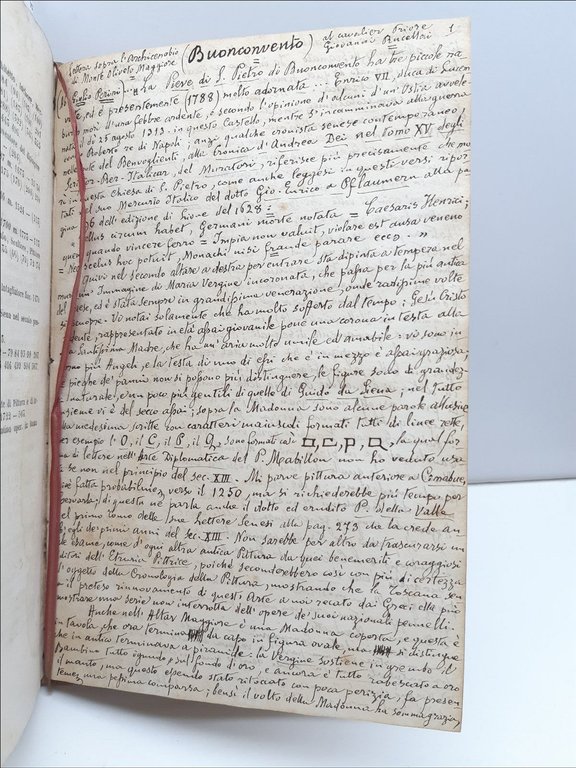 Lettera sopra l'Archicenobio di Monte Oliveto Maggiore (Buonconvento) al cavalier Priore Giovanni Rucellai 1
ha Pieve di S. Pietro di Buonconvento ha tre piccole na
vate, ed è presentemente (1788) molto adornata ... Enrico VII, duca di Lucem
burgo morì d'una febbre ardente, e secondo l'opinione d'alcuni d'un'Ostia avvele
il dì 25 agosto 1313 in questo Castello, mentre si incamminava alla guerra
Roberto re di Napoli: anzi qualche cronista senese contemporaneo,
del Benvoglienti, alla Cronica d'Andrea Dei nel tomo XV degli
Scriptor. Rer. Italicar. del Muratori, riferisce più precisamente che mo
rì in questa Chiesa di S. Pietro, come anche leggesi in questi versi ripor
tati nel suo Mercurio Italico del dotto Gio: Enrico a Pflaumern alla pa
gina 96 dell'edizione di Lione del 1628:
circum habet, Germani morte notata = Caesaris Henrici;
quando vincere ferro = Impia non valuit, violare est ausa veneno
= Nec scelus hoc potuit, Monachi nisi fraude parare ecc.. "
Quivi nel secondo altare a destra per entrare sta dipinta a tempera nel
muro un'Immagine di Maria Vergine incoronata, che passa per la più antica
del paese, ed è stata sempre in grandissima venerazione, onde radissime volte
si scuopre. Vi notai solamente che ha molto sofferto dal tempo; Gesù Cristo
sedente, rappresentato in età assai giovanile pone una corona in testa alla
Santissima Madre, che ha un'aria molto umile ed amabile: vi sono in
torno più Angeli, e la testa di uno di essi che è in mezzo è assai graziosa;
le pieghe de' panni non si possono più distinguere, le figure sono di grandez
za naturale, e un poco più gentili di quelle di Guido da Siena; nel tutto
insieme vi è del secco assai; sopra la Madonna sono alcune parole allusive
alla medesima scritte con caratteri maiuscoli formati tutti di linee rette,
per esempio l'O, il C, il P, il Q, sono formati così
di lettere nell'Arte Diplomatica del P. Mabillon non ho veduto usa
ta se non nel principio del sec. XIII. Mi parve pittura anteriore a Cimabue,
e fatta probabilmente verso il 1250, ma si richiederebbe più tempo per
osservarla; di questa ne parla anche il dotto ed erudito P. Della Valle
nel primo tomo delle sue Lettere Senesi alla pag. 273 da la crede an
ch'egli de' primi anni del sec. XIII. Non sarebbe per altro da trascurarsi un
tale esame, come d'ogni altra antica Pittura da quei benemeriti e coraggiosi
editori dell'Etruria Pittrice, poiché seconderebbero così con più di certezza
l'oggetto della Cronologia della Pittura, mostrando che la Toscana, sen
za il preteso rinnovamento di quest'Arte a noi recato dai Greci ella può
mostrare una serie non interrotta dell'opere de' suoi nazionali pennelli.
Anche nell'Altar Maggiore è una Madonna coperta, e questa è
in tavola, che ora termina da capo in figura ovale, ma si distingue
che in antico terminava a piramide: la Vergine sostiene in grembo il
Bambino tutto ignudo, sul fondo d'oro, e ancora è tutto rabescato a oro
il manto, ma questo essendo stato ritoccato con poca perizia, fa presen
temente una pessima comparsa; bensì il volto della Madonna ha somma grazia,